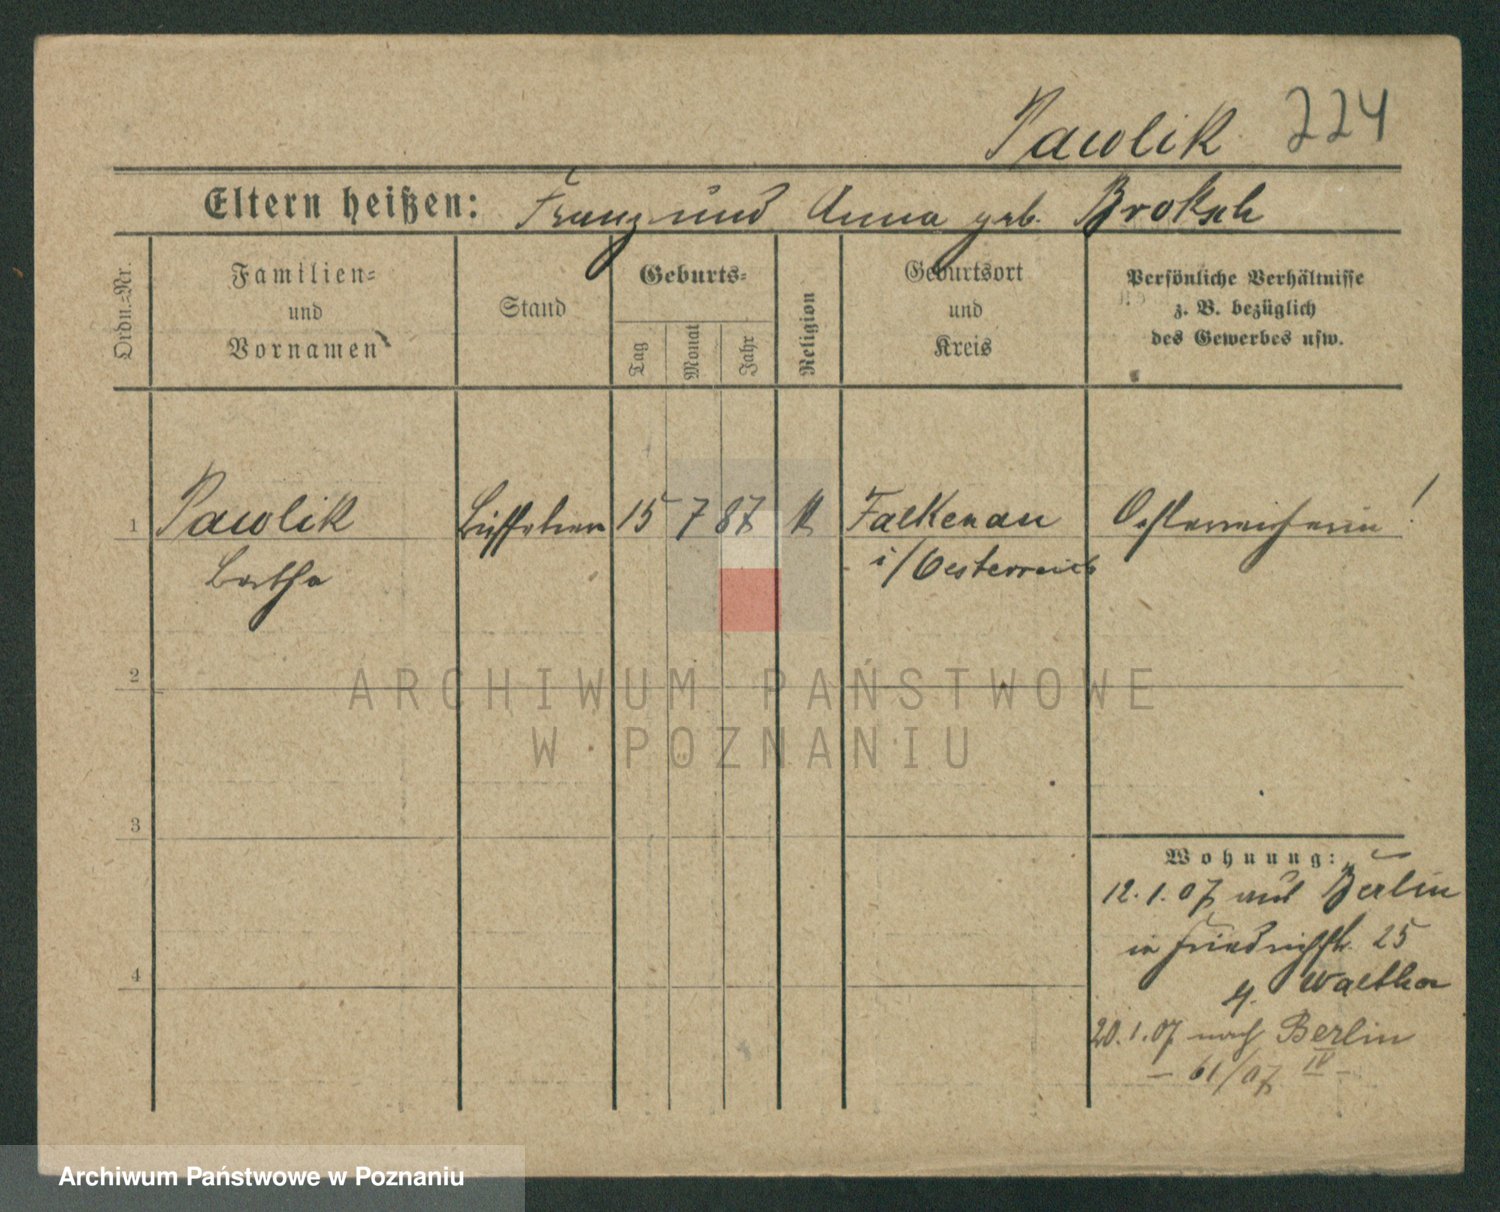 Pawlik 224
Eltern heißen: Franz und Anna geb. Broksch
Ordn.-Nr.
Familien-
und
Vornamen
Stand
Geburts-
Tag
Monat
Jahr
Religion
Geburtsort
und
Kreis
Persönliche Verhältnisse
z. B. bezüglich
des Gewerbes usw.
1 Pawlik 15 7 87 K Falkenau Oesterreicherin!
Bertha i/Oesterreich
2
3
4
Wohnung:
12.1.07 aus Berlin
in Friedrichstr. 25
b. Walther
20.1.07 nach Berlin
— 61/07 IV —
ARCHIWUM PAŃSTWOWE
W POZNANIU
Archiwum Państwowe w Poznaniu